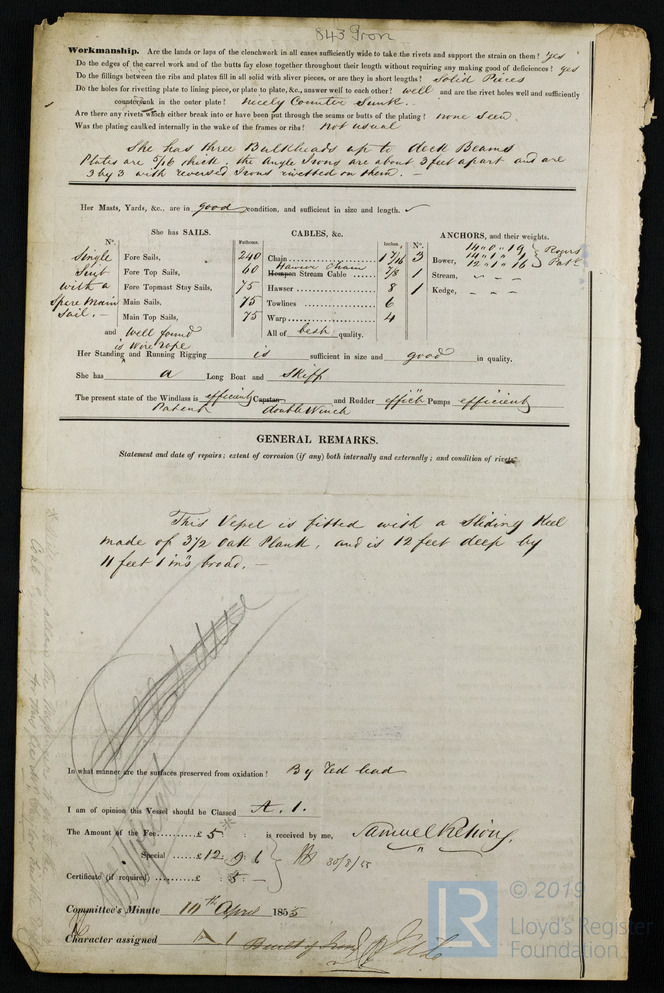 843 Iron
Workmanship. Are the lands or laps of the clenchwork in all cases sufficiently wide to take the rivets and support the strain on them? yes
Do the edges of the carvel work and of the butts fay close together throughout their length without requiring any making good of deficiences? yes
Do the fillings between the ribs and plates fill in all solid with sliver pieces, or are they in short lengths? Solid Pieces
Do the holes for rivetting plate to lining piece, or plate to plate, &c., answer well to each other? well and are the rivet holes well and sufficiently
countersunk in the outer plate? nicely Counter Sunk.
Are there any rivets which either break into or have been put through the seams or butts of the plating? none Seen
Was the plating caulked internally in the wake of the frames or ribs? Not usual
She has three Bulkheads up to deck Beams
Plates are 5/16 thick, the Angle Irons are about 3 feet apart and are
3 by 3 with reversed Irons rivetted on them. —
Her Masts, Yards, &c., are in good condition, and sufficient in size and length.
She has SAILS. CABLES, &c. ANCHORS, and their weights.
N°. Fathoms. Inches. N°.
Single Fore Sails, 240 Chain 1 1/16 3 Bower, 14 " 0 " 19 Rogers
14 " 1 " 1
12 " 1 " 16 Patt
Suit Fore Top Sails, 60 Hempen Hawser Chain Stream Cable 7/8 1 Stream,
with a Fore Topmast Stay Sails, 75 Hawser 8 1 Kedge,
Spare Main Main Sails, 75 Towlines 6
Sail. — Main Top Sails, 75 Warp 4
and well found All of best quality.
is Wire rope
Her Standing and Running Rigging is sufficient in size and good in quality.
She has a Long Boat and Skiff
The present state of the Windlass is efficient Capstan and Rudder effict Pumps efficient
Patent double Winch
GENERAL REMARKS.
Statement and date of repairs; extent of corrosion (if any) both internally and externally; and condition of rivets
This Vessel is fitted with a Sliding Keel
made of 3½ Oak Plank, and is 12 feet deep by
11 feet 1 ins broad. —
In what manner are the surfaces preserved from oxidation? By Red lead
I am of opinion this Vessel should be Classed A. 1.
The Amount of the Fee £ 5 : : is received by me, Samuel
Special £ 12 : 9 : 6 30/3/55
Certificate (if required) £ : 5 : —
Committee's Minute 10th April 1855
Character assigned A 1 Built of Iron
LR
© 2019
Lloyd's Register
Foundation